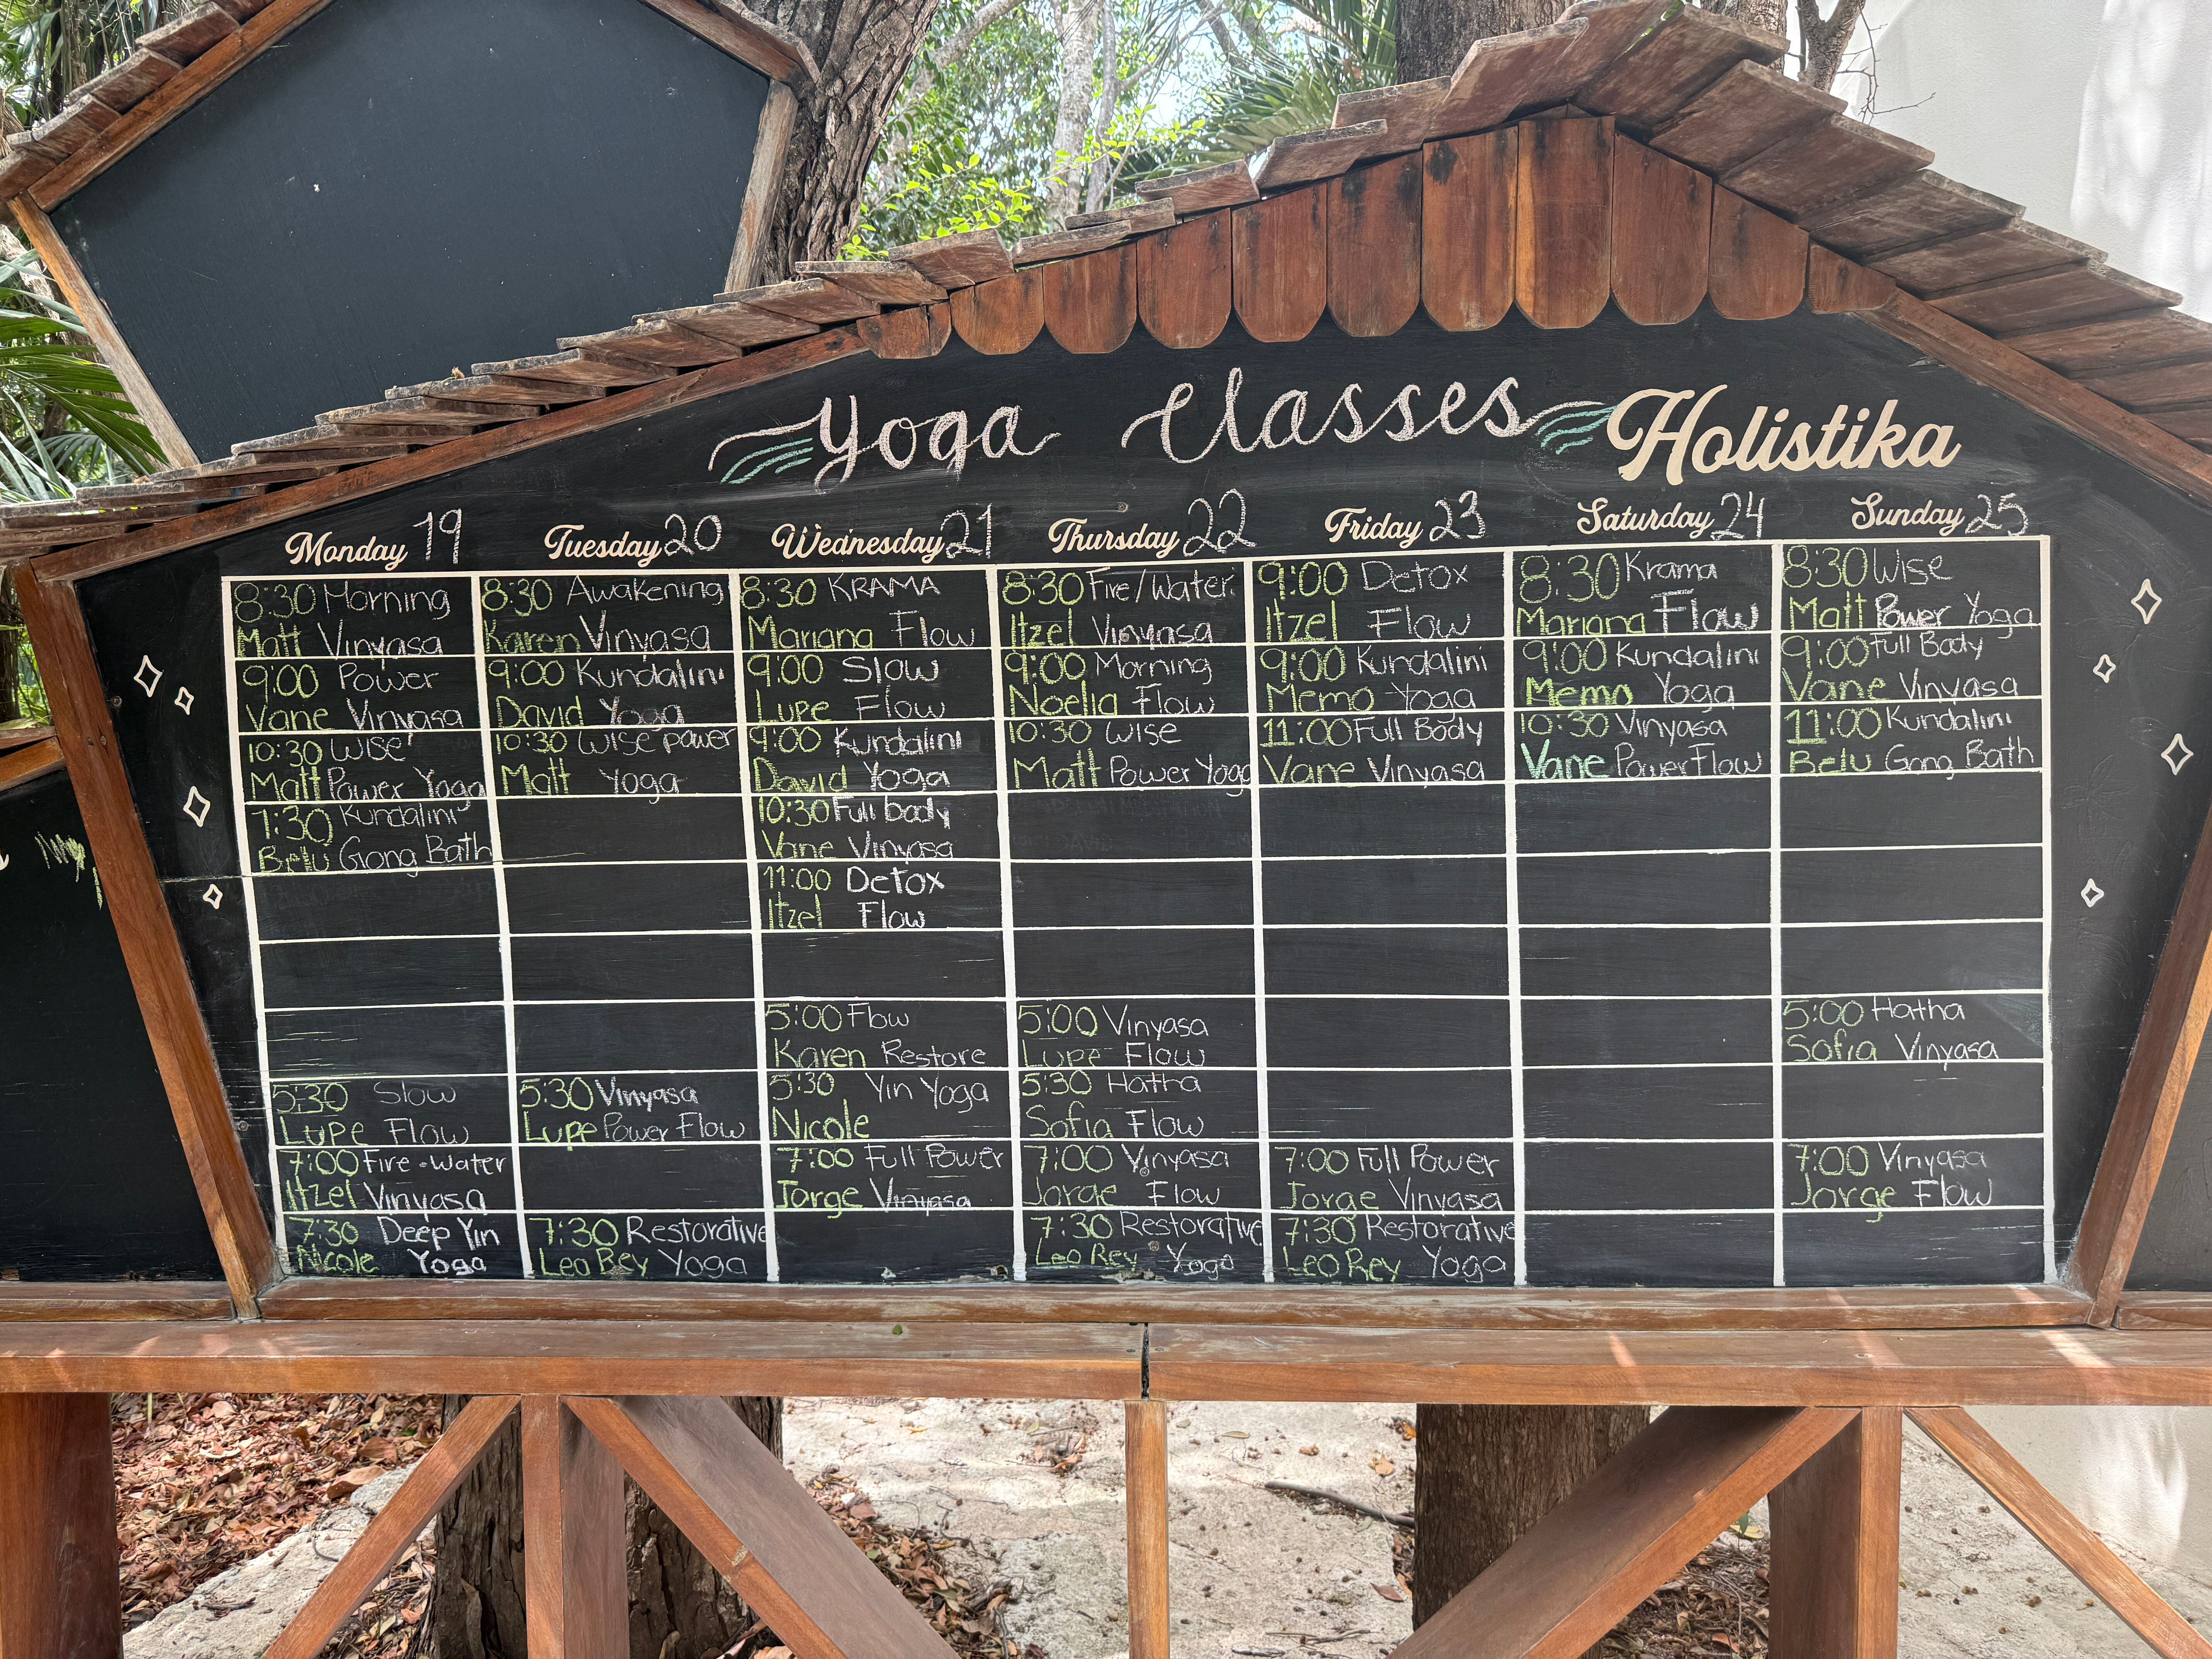 Yoga Classes Holistika
Monday 19
Tuesday 20
Wednesday 21
Thursday 22
Friday 23
Saturday 24
Sunday 25
8:30 Morning
Matt Vinyasa
9:00 Power
Vane Vinyasa
10:30 Wise
Matt Power Yoga
7:30 Kundalini
Belu Gong Bath
5:30 Slow
Lupe Flow
7:00 Fire-Water
Itzel Vinyasa
7:30 Deep Yin
Nicole Yoga
8:30 Awakening
Karen Vinyasa
9:00 Kundalini
David Yoga
10:30 Wise power
Matt Yoga
5:30 Vinyasa
Lupe Power Flow
7:30 Restorative
Leo Rey Yoga
8:30 KRAMA
Mariana Flow
9:00 Slow
Lupe Flow
9:00 Kundalini
David Yoga
10:30 Full body
Vane Vinyasa
11:00 Detox
Itzel Flow
5:00 Flow
Karen Restore
5:30 Yin Yoga
Nicole
7:00 Full Power
Jorge Vinyasa
8:30 Fire/Water
Itzel Vinyasa
9:00 Morning
Noelia Flow
10:30 Wise
Matt Power Yoga
5:00 Vinyasa
Lupe Flow
5:30 Hatha
Sofia Flow
7:00 Vinyasa
Jorge Flow
7:30 Restorative
Leo Rey Yoga
9:00 Detox
Itzel Flow
9:00 Kundalini
Memo Yoga
11:00 Full Body
Vane Vinyasa
7:00 Full Power
Jorge Vinyasa
7:30 Restorative
Leo Rey Yoga
8:30 Krama
Mariana Flow
9:00 Kundalini
Memo Yoga
10:30 Vinyasa
Vane Power Flow
8:30 Wise
Matt Power Yoga
9:00 Full Body
Vane Vinyasa
11:00 Kundalini
Belu Gong Bath
5:00 Hatha
Sofia Vinyasa
7:00 Vinyasa
Jorge Flow